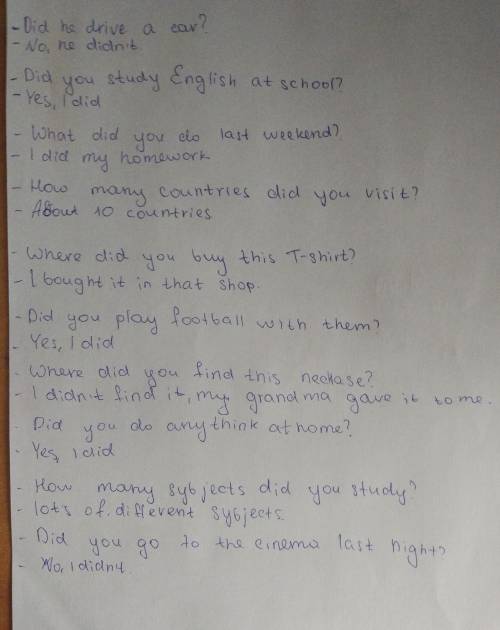 - Did he drive a car?
- No, he didn't
- Did you study English at school?
- Yes, I did
- What did you do last weekend?
- I did my homework
- How many countries did you visit?
- About 10 countries
- Where did you buy this T-shirt?
- I bought it in that shop.
- Did you play football with them?
- Yes, I did
- Where did you find this neckase?
- I didn't find it, my grandma gave it to me.
- Did you do anythink at home?
- Yes, I did
- How many sybjects did you study?
- lots of different sybjects.
- Did you go to the cinema last night?
- No, I didn't.